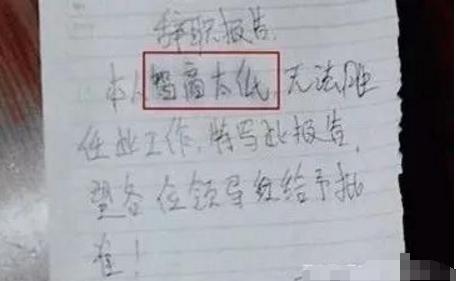 辞职报告
本人智商太低,无法胜
任此工作,特写此报告,
望各位领导红给予批
准!